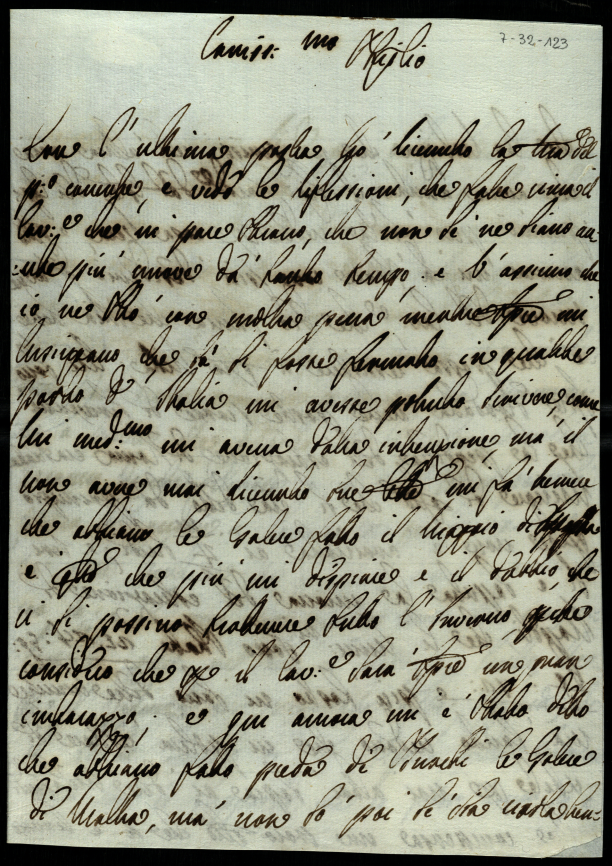 7-32-123
Cariss:mo Figlio
Con l'ultima posta hò riceuuto la tua del
p:o corrente, e uedo le riflessioni, che fate circa il
Cau:e che in pare strano, che non si ne siano au
:ute più nuoue da tanto tempo: e l'assicuro che
io ne stò con molta pena mentre
lusingauo, che se si fosse fermato in qualche
porto d'Italia mi auesse potuto scriuere, come
lui med:mo mi aueua data intenzione, ma il
non auer mai riceuuto sue mi fà temere
che abbiano le Galere fatto il uiaggio di
e che più mi dispiace e il dubbio, che
ci si possino trattenere tutto l'Inuerno,
considero che il Cau:e sarà in gran
imbarazzo: e qui ancora mi è stato detto
che abbiano fatto preda di Turchi le Galere
di Malta, mà non sò poi se sia uerita